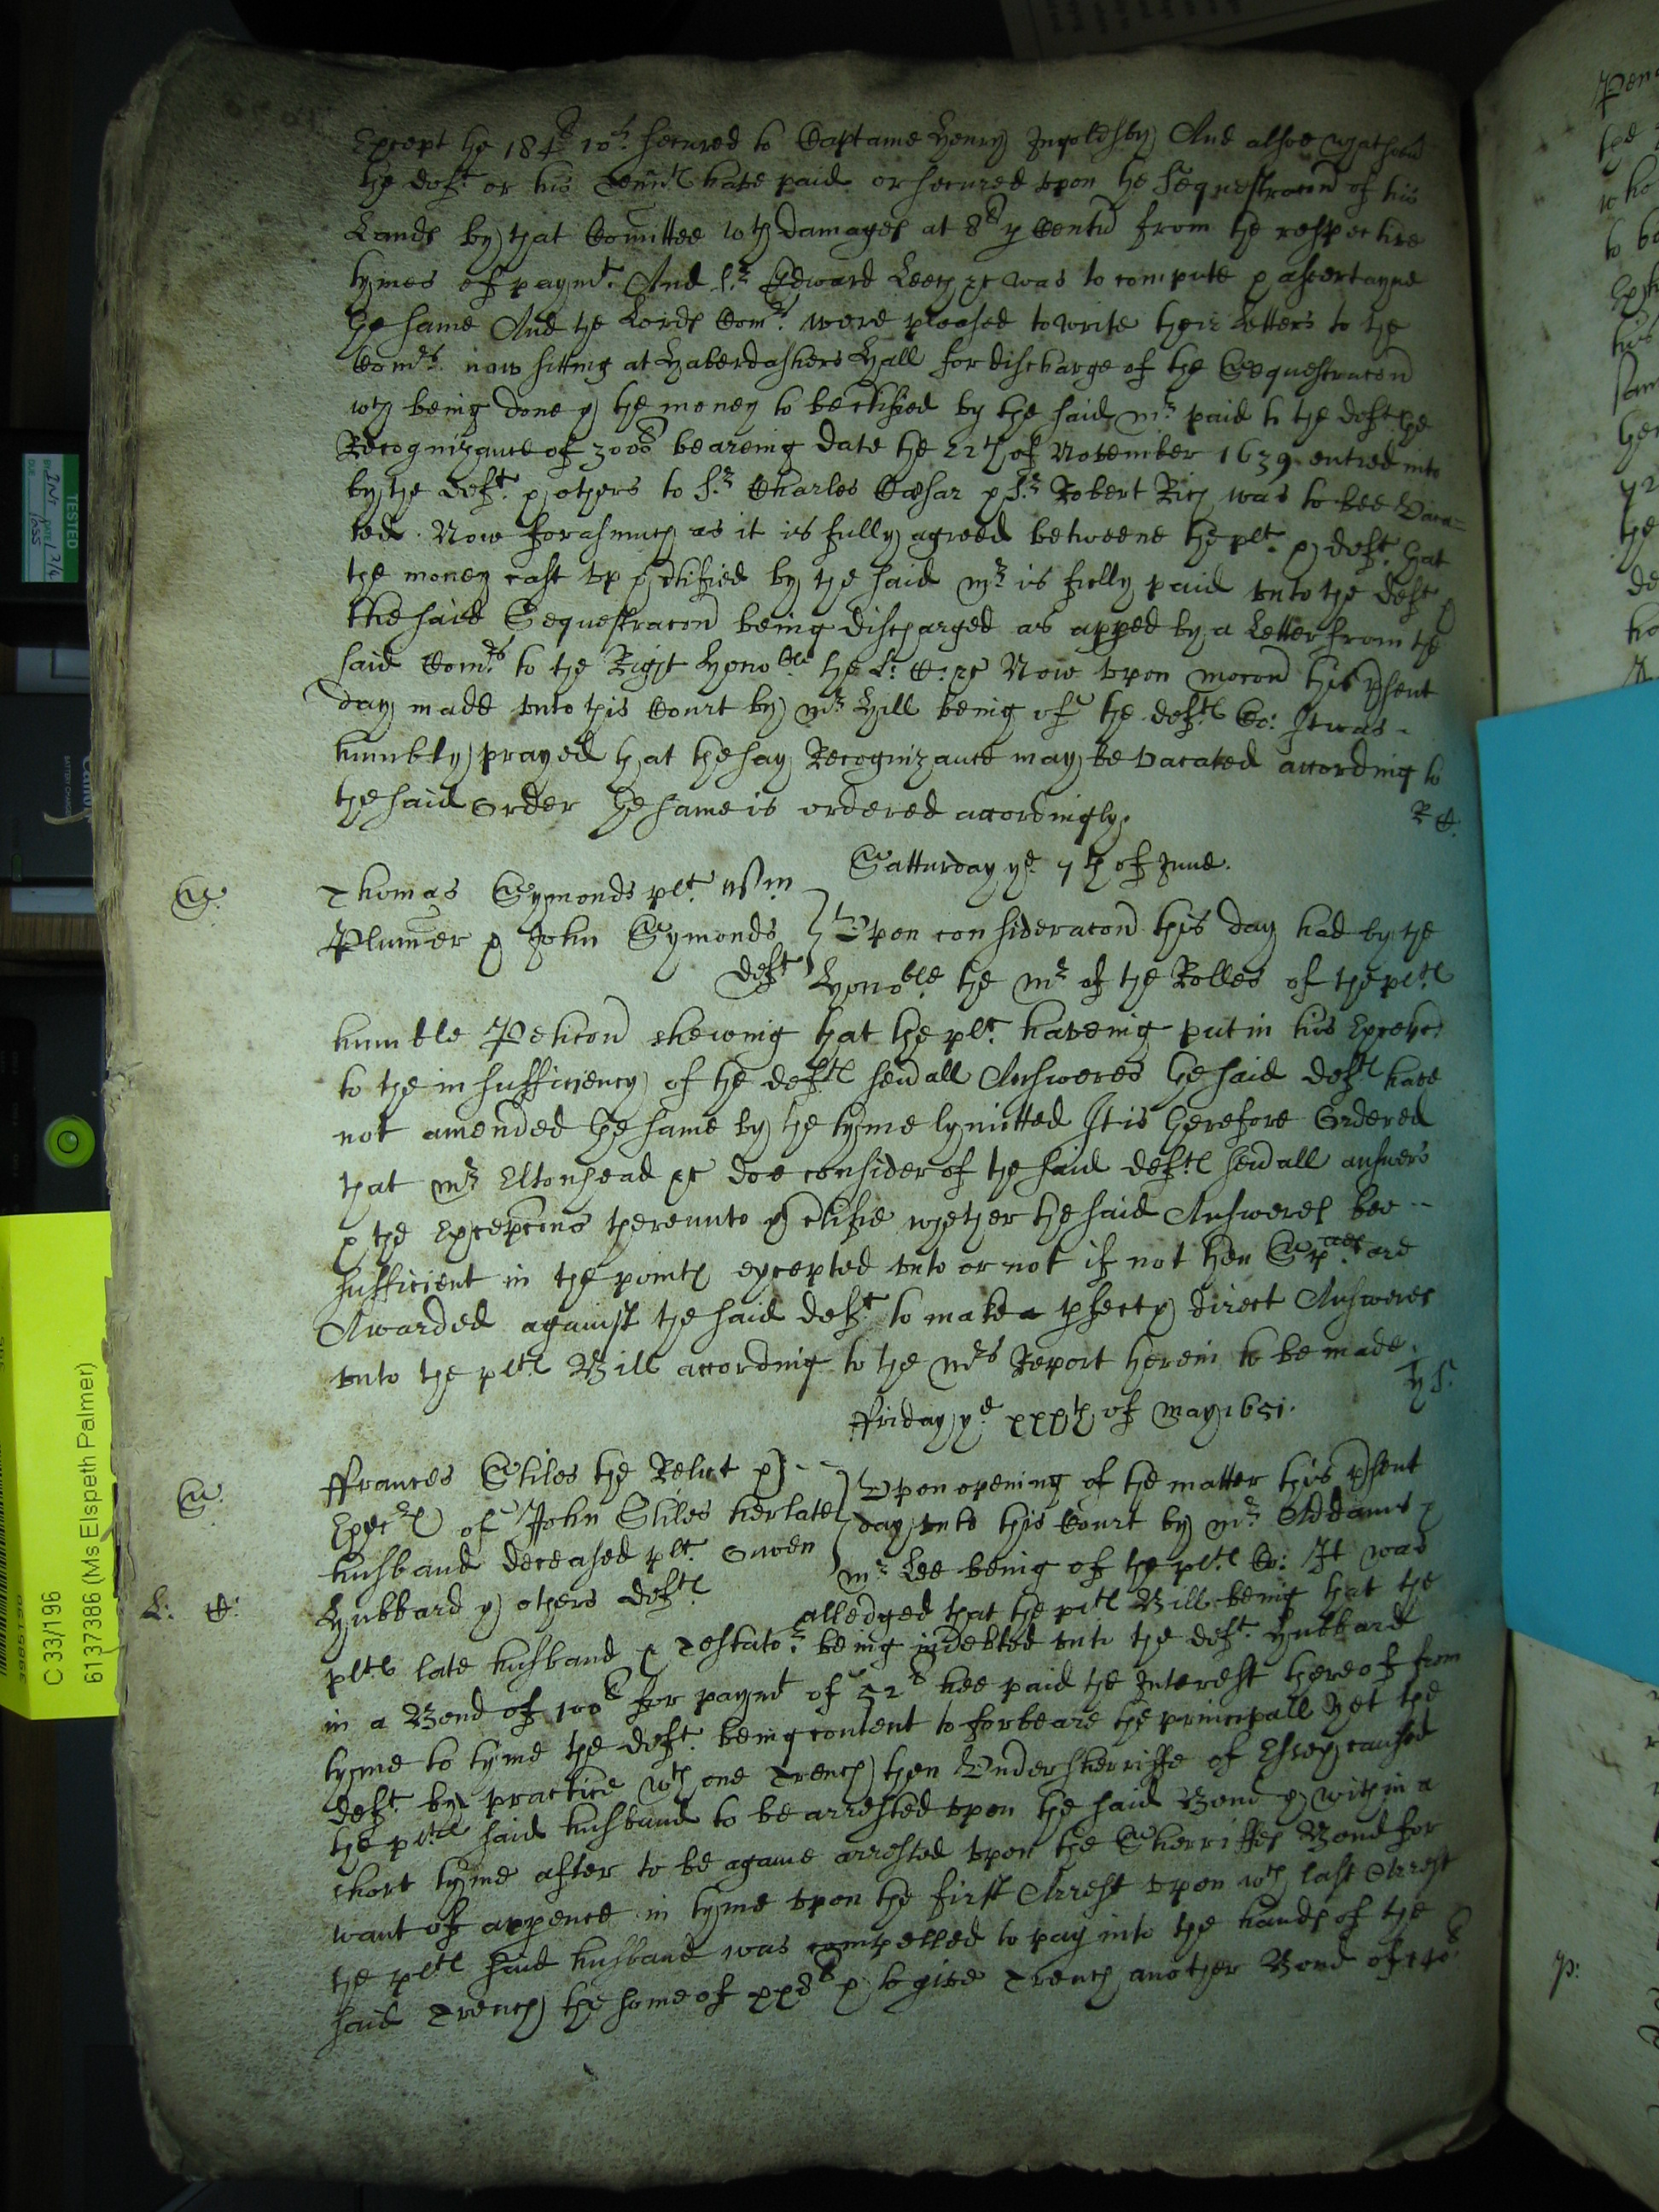 Except the 184li 10s secured to Captaine Henry Ingoldsby And alsoe whatsoever
the deft. or his Tennts have paid or secured upon the Sequestracon of his
Lands by that Comittee wth Damages at 8li p Centu from the respective
tymes of paymt. And Sr. Edward Leech &c was to compute & ascertayne
the same And the Lords Comrs. were pleased to write their Letters to the
Comrs. now sitting at Haberdashers Hall for discharge of the Sequestracon
wch being done & the money to be ctified by the said mr. paid to the deft. the
Recognizance of 3000li beareing date the 22th of November 1639 entred into
by the deft. & others to Sr. Charles Cæsar & Sr. Robert Rich was to bee Vaca=
ted. Now forasmuch as it is fully agreed betweene the plt. & deft. that
the money cast up & ctified by the said mr. is fully paid unto the deft &
the said Sequestracon being discharged as apped by a Letter from the
said Comrs to the Right Honoble. the L: C: &c Now upon mocon this psent
day made unto this Court by mr. Hill being of the defts Co: It was -
humbly prayed that the say Recognizance may be vacated according to
the said Order the same is ordered accordingly.
R C.
Satturday ye. 7th of June.
S.
Thomas Symonds plt. Wm
Plumer & John Symonds
deft
Upon consideracon this day had by the
Honoble. the mr. of the Rolles of the plts
humble Peticon shewing that the plt. haveing put in his Excepcons
to the insufficiency of the defts sevall Answeres the said defts have
not amended the same by the tyme lymitted It is therefore Ordered
that mr. Eltonhead &c doe consider of the said defts sevall answers
& the Excepcons thereunto & ctifie whether the said Answeres bee --
sufficient in the points excepted unto or not if not then Spaes are
Awarded against the said deft. to make a pfect & direct Answeres
unto the plts Bill according to the mrs Report herein to be made.
ffriday ye. xxxth of May 1651.
S.
L: C:
ffrances Stiles the Relict &
Execr. of John Stiles her late
husband deceased plt. Owen
Hubbard & others defts
Upon opening of the matter this psent
day unto this Court by mr. Addams &
mr. Lee being of the plts Co: It was
alledged that the plts Bill being that the
plts late husband & Testator. being indebted unto the deft. Hubbard
in a Bond of 100li for paymt of 52li hee paid the Interest thereof from
tyme to tyme the deft. being content to forbeare the principall Yet the
deft. by practice wth one Trench then Undersherriffe of Essex caused
the plts said husband to be arrested upon the said Bond & within a
short tyme after to be againe arrested upon the Sherriffes Bond for
want of appence in tyme upon the first Arrest upon wch last Arrest
the plts said husband was compelled to pay into the hands of the
said Trench the some of & to give Trench another Bond of
C 33/196
6137386 (Ms Elspeth Palmer)
TESTED